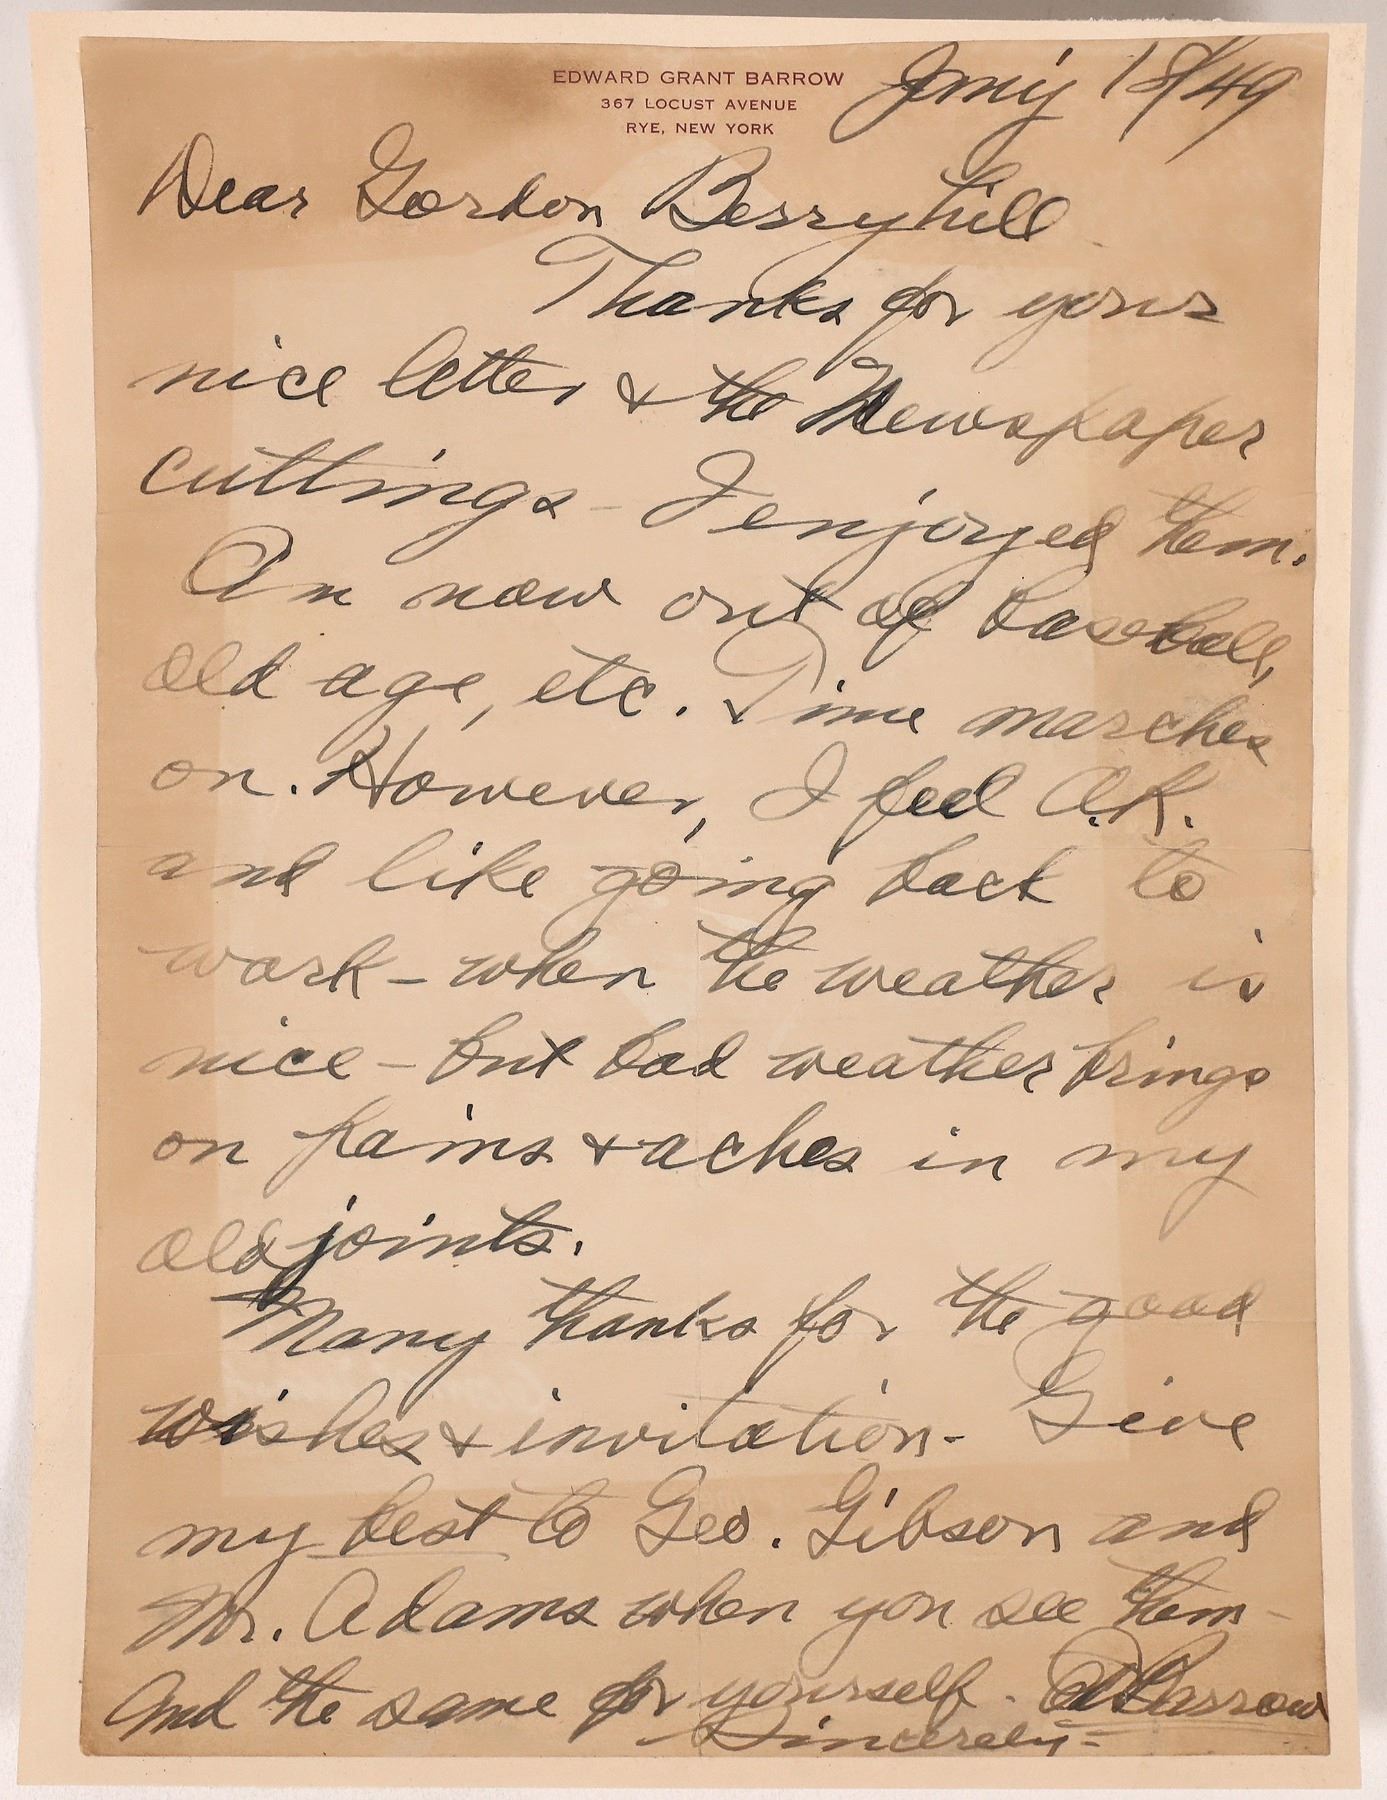 EDWARD GRANT BARROW
367 LOCUST AVENUE
RYE, NEW YORK
Jany 18/49
Dear Gordon Berryhill
Thanks for your
nice letter & the Newspaper
cuttings - I enjoyed them.
Am now out of baseball,
old age, etc. Time marches
on. However, I feel O.K.
and like going back to
work - when the weather is
nice - but bad weather brings
on pains & aches in my
old joints.
Many thanks for the good
wishes & invitation - Give
my best to Geo. Gibson and
Mr. Adams when you see them -
And the same for yourself. Ed Barrow
Sincerely -